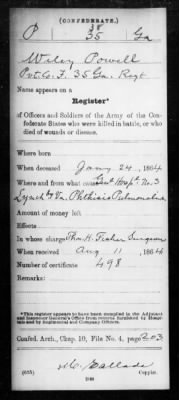 (CONFEDERATE.)
P 38 35 Ga
Wiley Powell
Pvt. Co. F. 35 Ga. Regt
Name appears on a
Register*
of Officers and Soldiers of the Army of the Con-
federate States who were killed in battle, or who
died of wounds or disease.
Where born
When deceased Jany 24, 1864
Where and from what cause Gen'l Hosp'l No. 3
Lynchb'g Va. Phthisis Pulmonalis
Amount of money left
Effects
In whose charge Thos. H. Fisher Surgeon
When received Aug 11, 1864
Number of certificate 498
Remarks:
*This register appears to have been compiled in the Adjutant
and Inspector General's Office from records furnished by Hospi-
tals and by Regimental and Company Officers.
Confed. Arch., Chap. 10, File No. 4, page 203
(635)
Copyist.